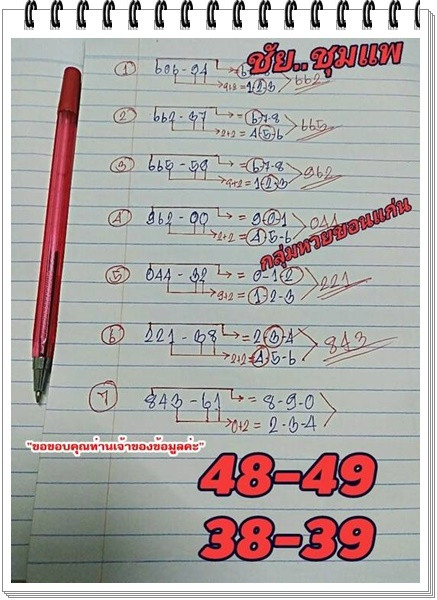 ชัย..ชุมแพ
① 606-94 → 662
9+3 = 1-2-3
② 662-37 → = 6-7-8 665
2+2 = 4-5-6
③ 665-59 → = 6-7-8 962
9+2 = 1-2-3
④ 962-00 → = 9-0-1 044
2+2 = 4-5-6
กลุ่มหวยขอนแก่น
⑤ 044-32 → = 0-1-2 221
9+2 = 1-2-3
⑥ 221-38 → = 2-3-4 843
2+2 = 4-5-6
⑦ 843-61 → = 8-9-0
0+2 = 2-3-4
"ขอขอบคุณท่านเจ้าของข้อมูลค่ะ"
48-49
38-39